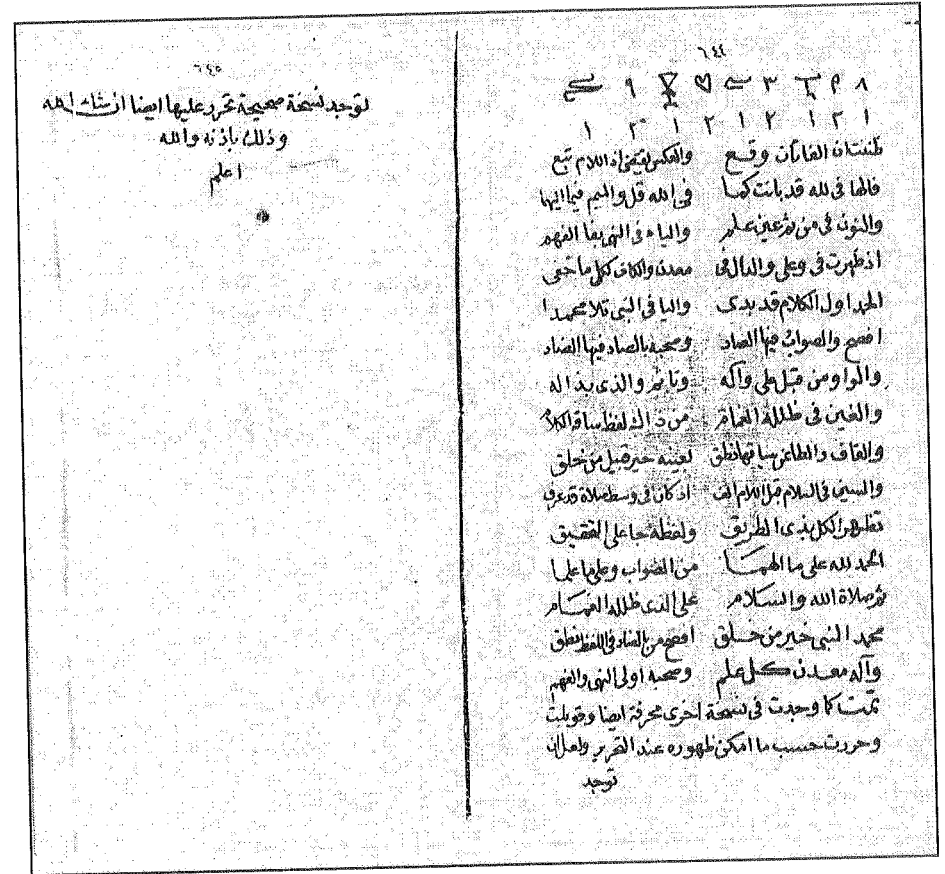 ٦٤٤
١ ٢ ١ ٢ ١ ٢ ١ ٢ ١
ظننت ان الفائتات وقع والعكس يقتضى اذ اللام تبع
فالها فى لله قد بانت كما فى الله قل والميم فيما اليها
والنون فى من ثم عين علم والياء فى النهى بفا الفهم
اذ ظهرت فى وعلى والدال فى معدن والكاف ككل ما خفى
الحمد اول الكلام قد بدى واليا فى النبى تلا محمدا
افصح والصواب فيها الصاد وصحبه بالصاد فيها الضاد
والواو من قبل على وآله وثا ثم والذى بذا له
والغين فى ظلله الغمام من ذاك لفظ ساقه الكلام
والقاف والطا من بها نطق لعينه خير قبيل من خلق
والسين فى السلام قبل اللام الف اذ كان فى وسط صلاة قد عرف
تظهر الكل بذى الطريق ولفظه جا على التحقيق
الحمد لله على ما الهما من الصواب وعلى ما علما
ثم صلاة الله والسلام على الذى ظلله الغمام
محمد النبى خير من خلق افصح من بالضاد فى اللفظ نطق
وآله معدن كل علم وصحبه اولى النهى والفهم
تمت كما وجدت فى نسخة اخرى محرفة ايضا وقوبلت
وحررت حسب ما امكن ظهوره عند التحرير ولعل ان
توجد
٦٤٥
توجد نسخة صحيحة تحرر عليها ايضا ان شاء الله
وذلك باذنه والله
اعلم